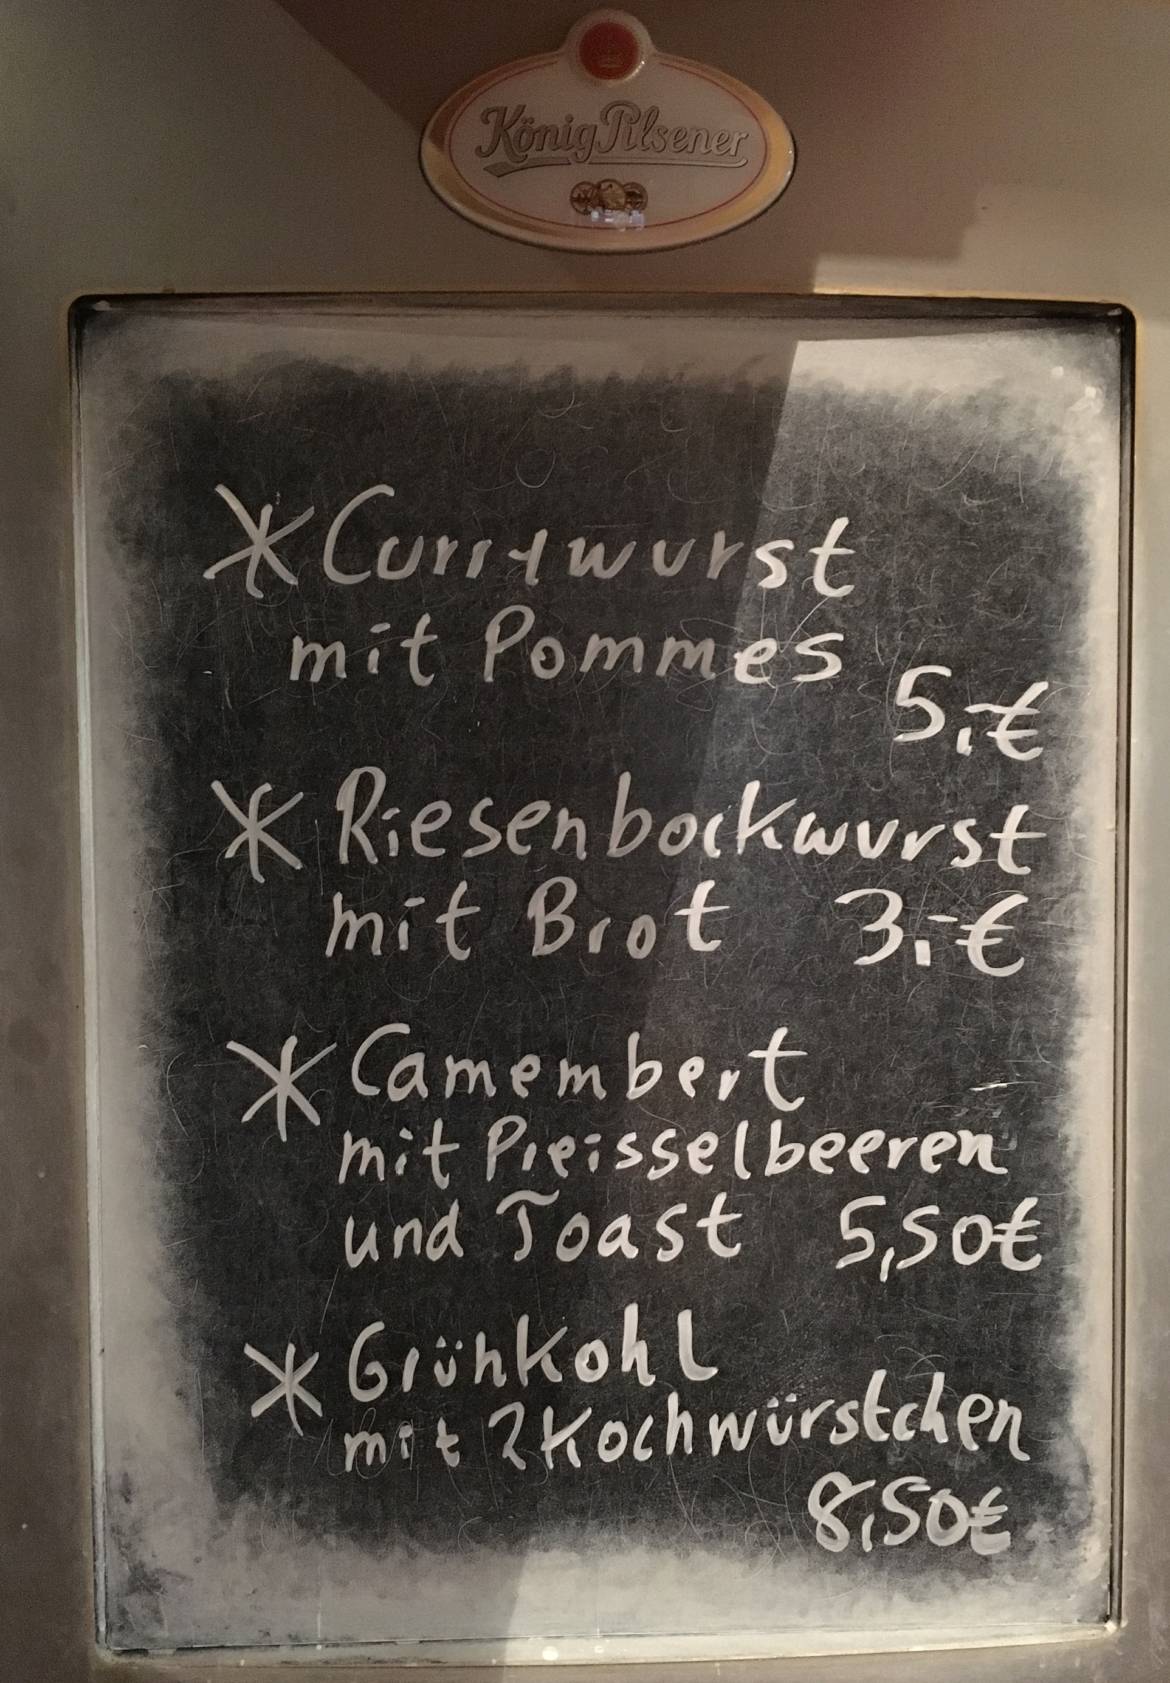 König Pilsener
* Currywurst
mit Pommes
5,-€
* Riesenbockwurst
mit Brot 3,-€
* Camembert
mit Preisselbeeren
und Toast 5,50€
* Grühkohl
mit 2 Kochwürstchen
8,50€